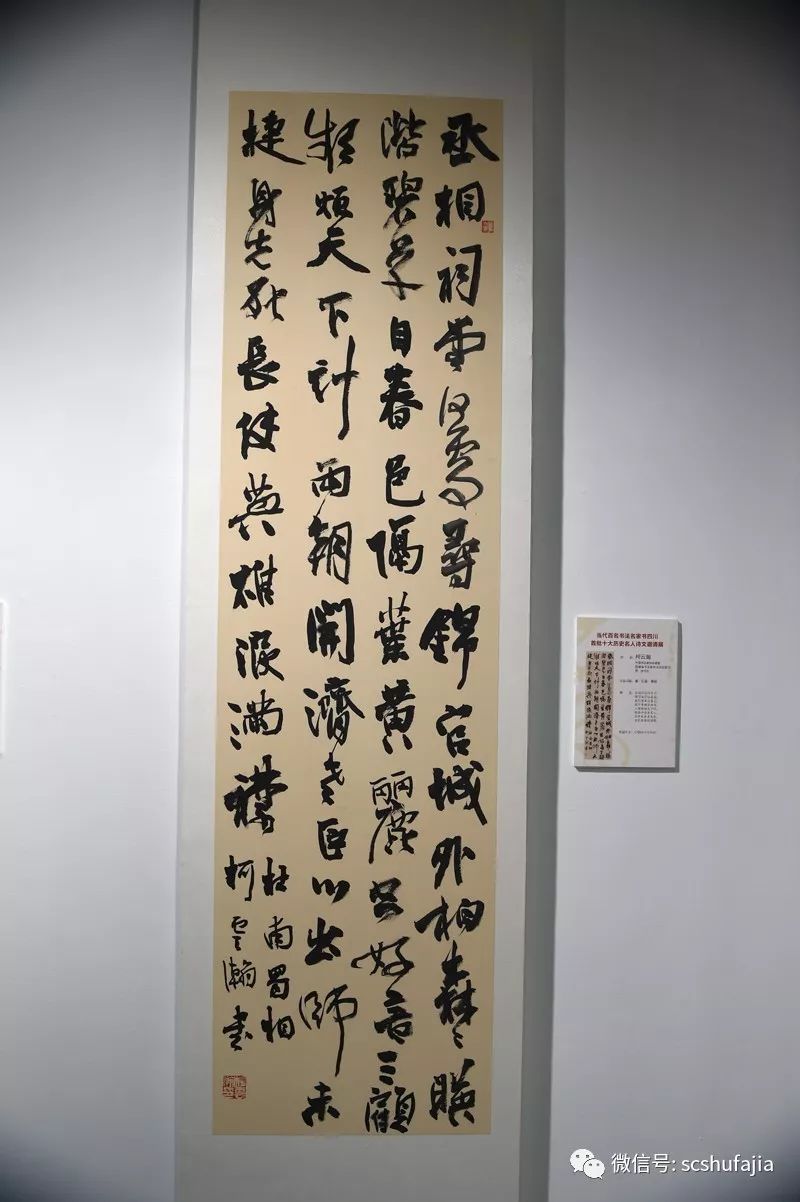 丞相祠堂何處尋錦官城外柏森々映
階碧草自春色隔葉黄鸝空好音三顧
頻煩天下計兩朝開濟老臣心出師未
捷身先死長使英雄淚滿襟
杜甫蜀相
柯雲瀚書
当代百名书法名家书四川
首批十大历史名人诗文邀请展
柯云瀚
微信号: scshufajia